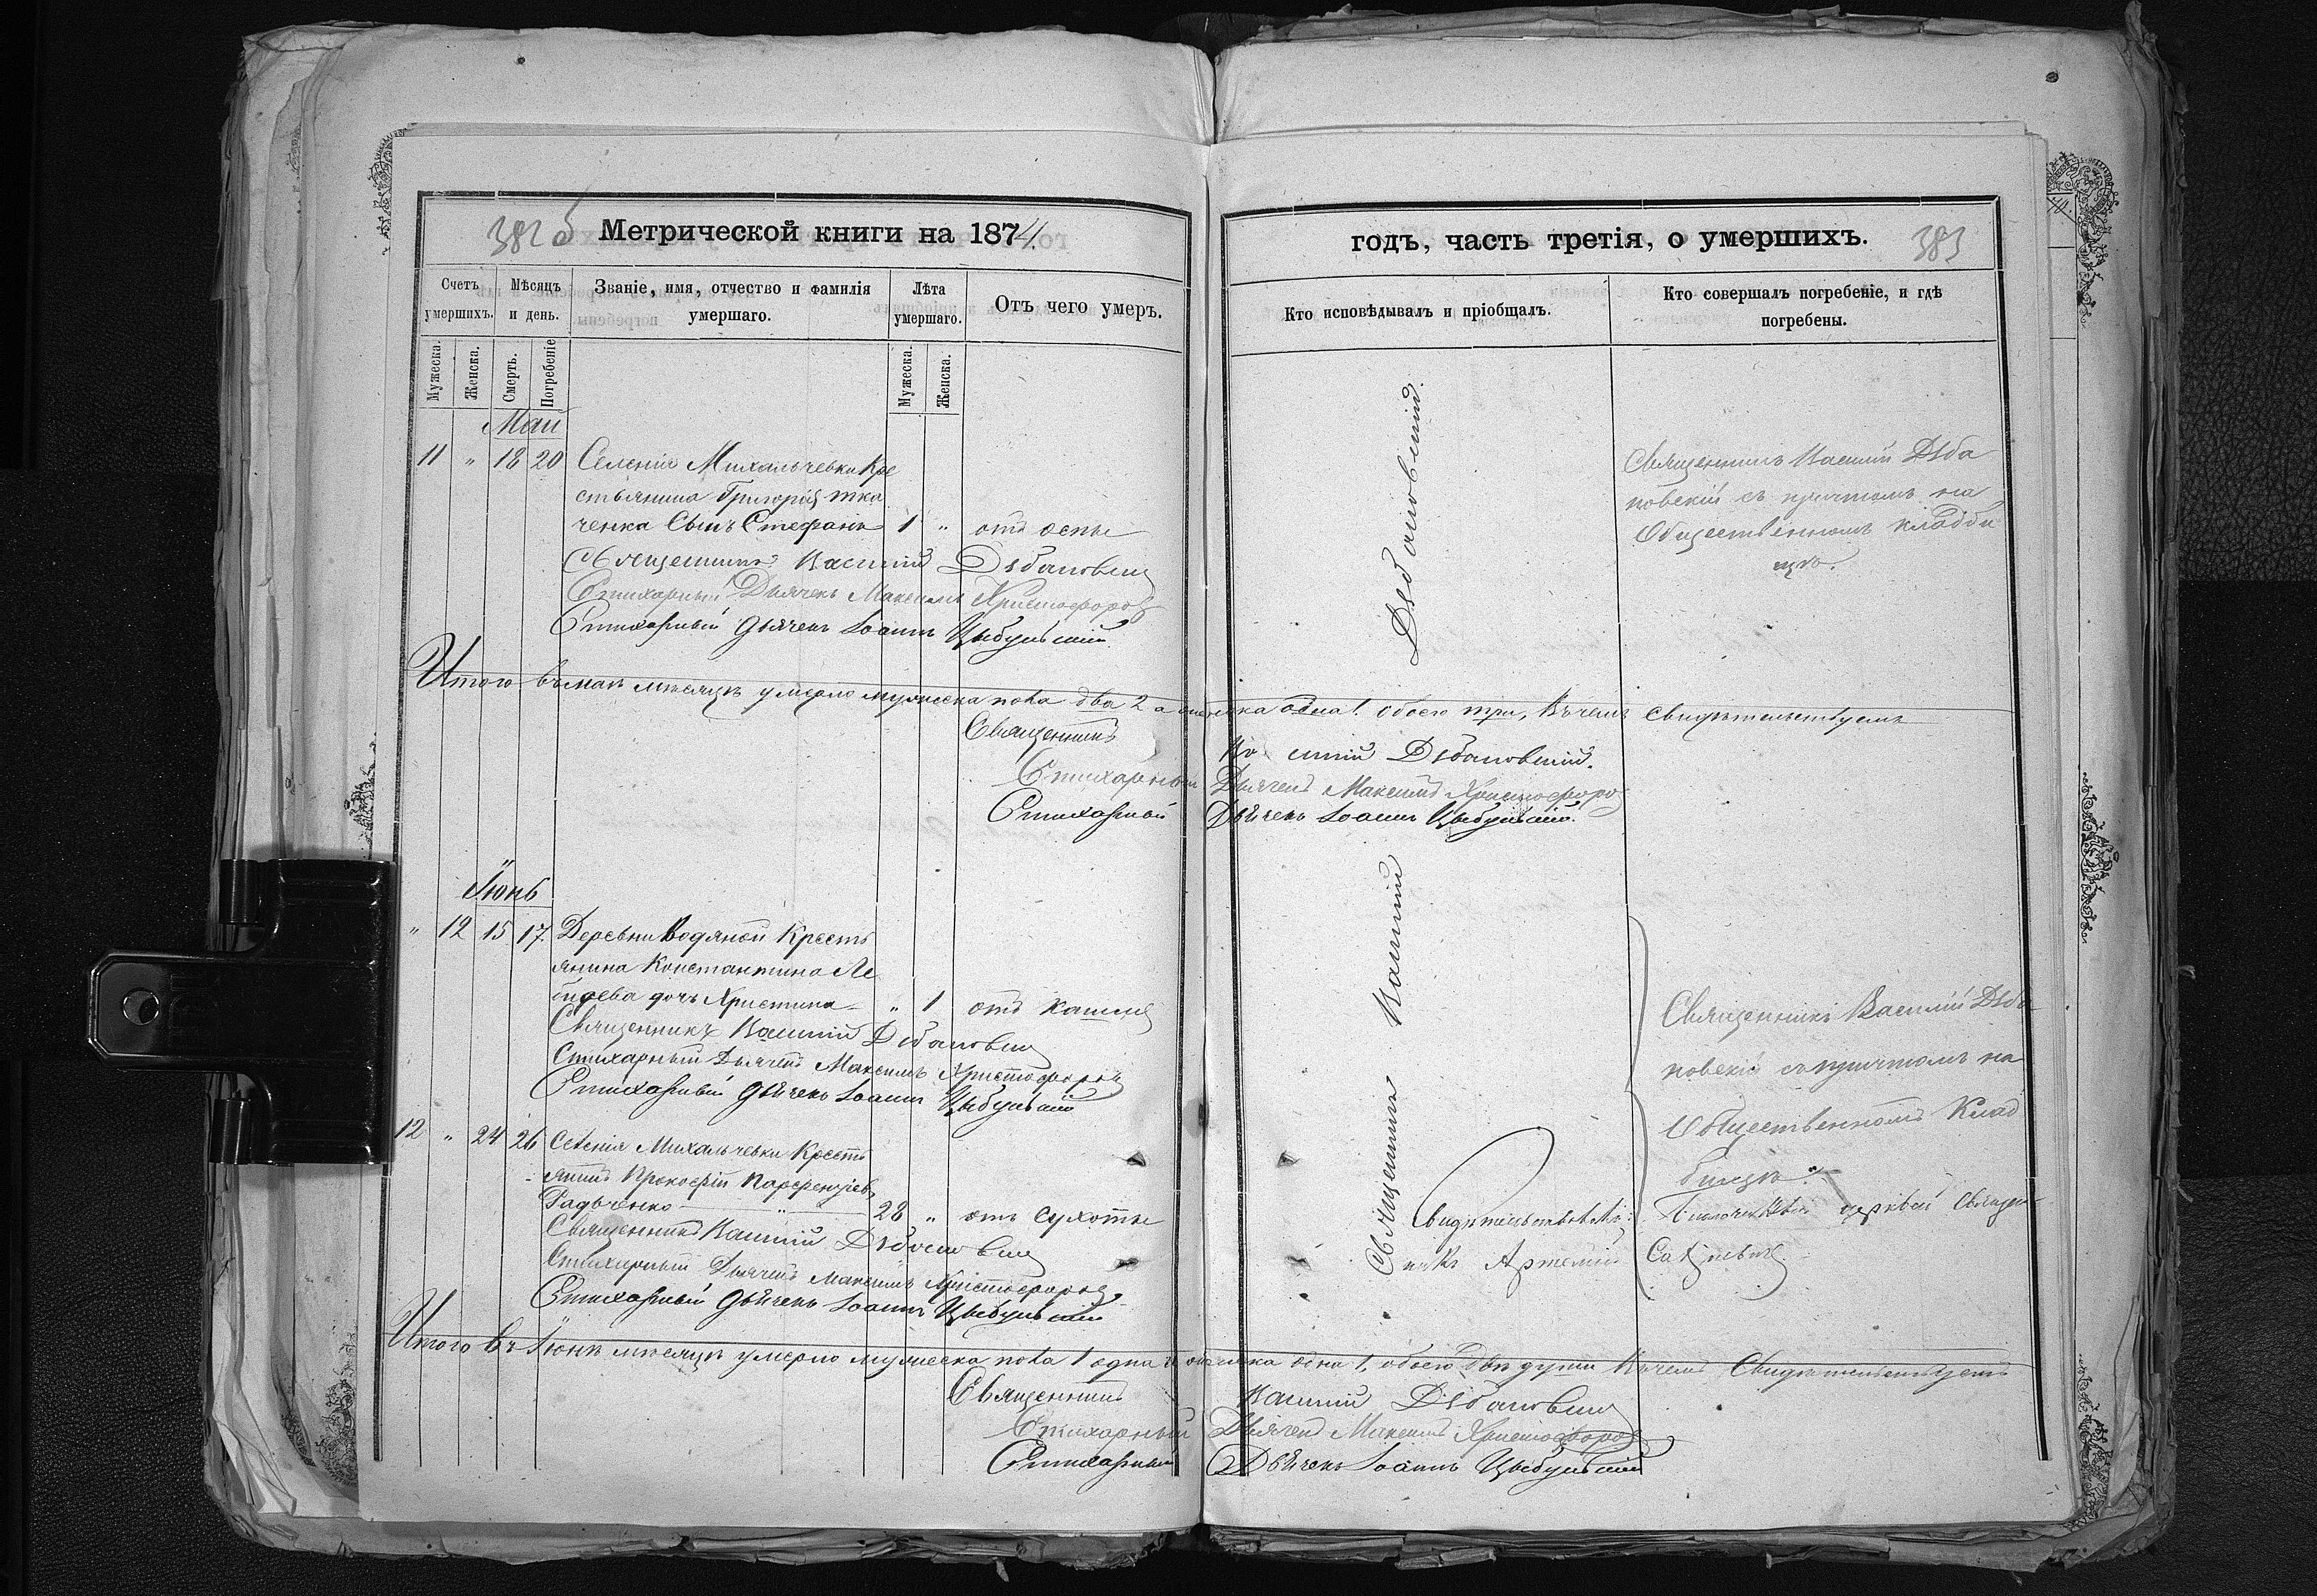 382 б Метрической книги на 1874.
годъ, часть третія, о умершихъ. 383
Счетъ умершихъ.
Мѣсяцъ и день.
Званіе, имя, отчество и фамилія умершаго.
Лѣта умершаго.
Отъ чего умеръ.
Кто исповѣдывалъ и пріобщалъ.
Кто совершалъ погребеніе, и гдѣ погребены.
Мужеска.
Женска.
Смерть.
Погребеніе
Мужеска.
Женска.
Май
11 " 18 20 Селенія Михальчевки Кре
стьянина Григорія Тка
ченка Сынъ Стефанъ 1 " отъ оспы
Священникъ Василій Дѣбановскій
Стихарный Дьячекъ Максимъ Христофоровъ
Стихарный Дьячекъ Іоаннъ Цыбульскій
Священникъ Василій Дѣба
новскій съ причтомъ на
Общественномъ кладби
щѣ.
Итого въ маѣ мѣсяцѣ умерло мужеска пола два 2 а женска одна 1. обоего три, Въ чемъ свидѣтельствуемъ
Священникъ Василій Дѣбановскій.
Стихарный Дьячекъ Максимъ Христофоровъ
Стихарный Дьячекъ Іоаннъ Цыбульскій.
Іюнь
" 12 15 17. Деревни Водяной Кресть
янина Константина Ле
бидева дочь Христина " 1 отъ кашля
Священникъ Василій Дѣбановскій
Стихарный Дьячекъ Максимъ Христофоровъ
Стихарный Дьячекъ Іоаннъ Цыбульскій
12 " 24 26 Селенія Михальчевки Кресть
янинъ Прокофій Парфентіевъ
Радченко " 28 " отъ сухоты
Священникъ Василій Дѣбановскій
Стихарный Дьячекъ Максимъ Христофоровъ
Стихарный Дьячекъ Іоаннъ Цыбульскій
Священникъ Василій Дѣбановскій.
Священникъ Василій Дѣба
новскій съ причтомъ на
Общественномъ Клад
бищѣ.
церквей Священ
никъ Артемій
Итого въ Іюнѣ мѣсяцѣ умерло мужеска пола 1 одна и женска одна 1, обоего двѣ души Въ чемъ Свидѣтельствуемъ
Священникъ Василій Дѣбановскій
Стихарный Дьячекъ Максимъ Христофоровъ
Стихарный Дьячекъ Іоаннъ Цыбульскій